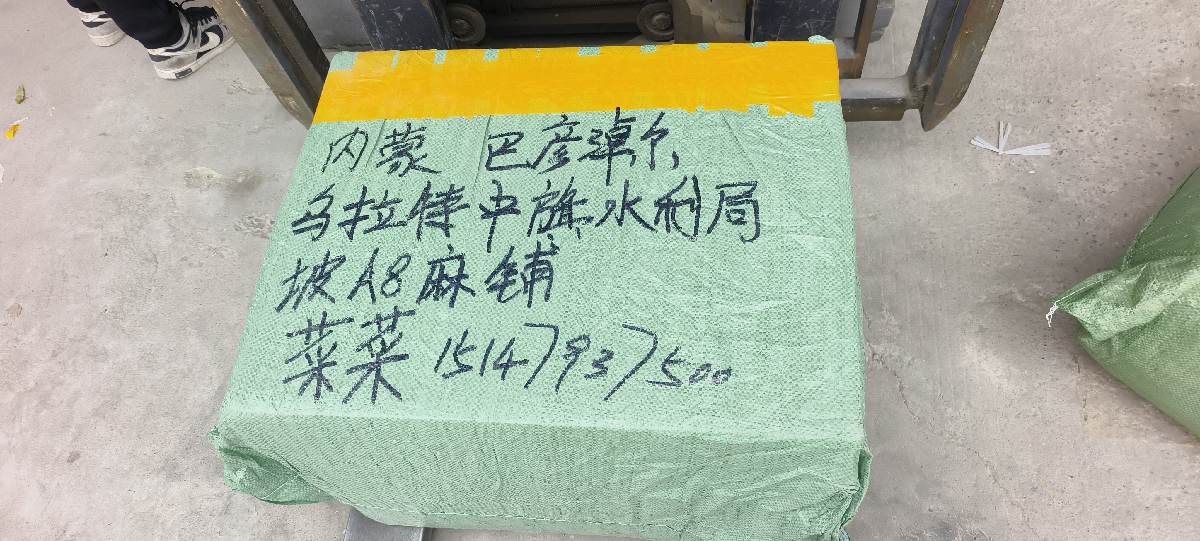 内蒙 巴彦淖尔
乌拉特中旗水利局
坡A8麻铺
菜菜 15147937500